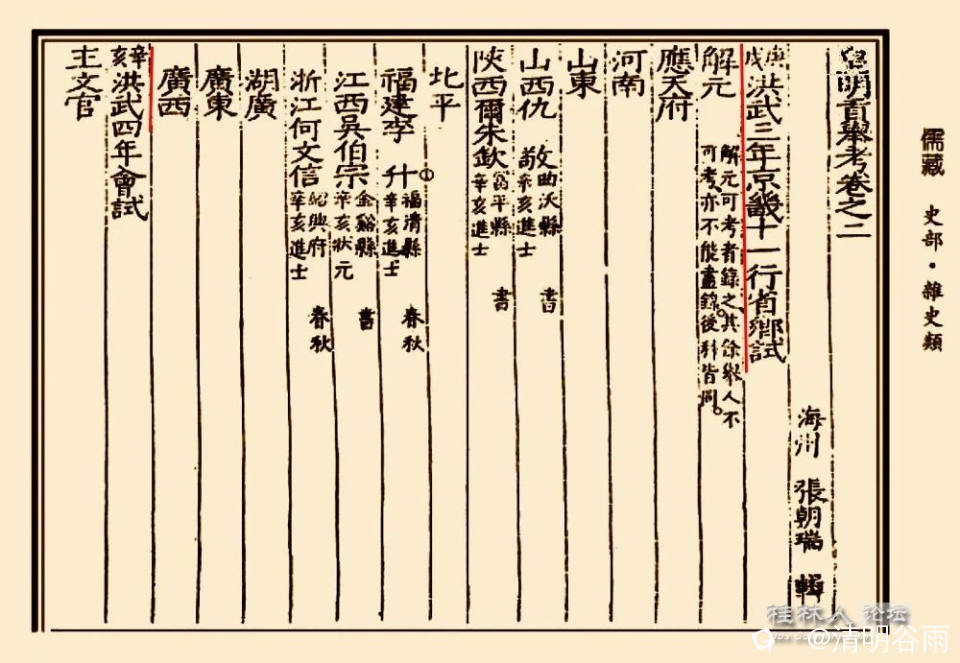 皇明貢舉考卷之二
海州 張朝瑞 輯
庚戌洪武三年京畿十一行省鄉試
解元 解元可考者錄之其餘舉人不
可考亦不能盡錄後科皆同
應天府
河南
山東
山西仇 敬 助沃縣 書
辛亥進士
陝西爾朱欽 平縣 書
辛亥進士
北平
福建李 升 福清縣 春秋
辛亥進士
江西吳伯宗 金谿縣 書
辛亥狀元
浙江何文信 紹興府 春秋
辛亥進士
湖廣
廣東
廣西
辛亥洪武四年會試
主文官
儒藏 史部·雜史類
桂林人 论坛
@清明谷雨